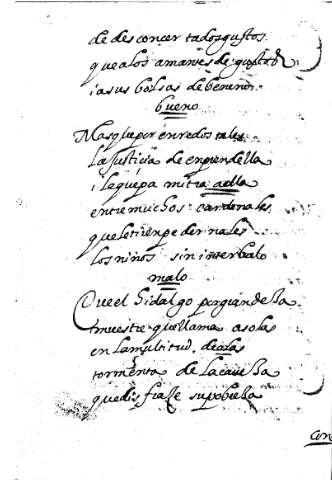 de desconcertados gustos
que a los amantes de gusto
i a sus bolsas de beneno
bueno
Mas que por enredos tales
la Justicia de enprendella
i le quepa mitra a ella
entre muchos cardenales
que le tiren pedernales
los niños sin interbalo
malo
Que el hidalgo por grandeza
muestre que llama a solas
en la multitud de olas
tormenta de la
que disfraze su pobreza
con